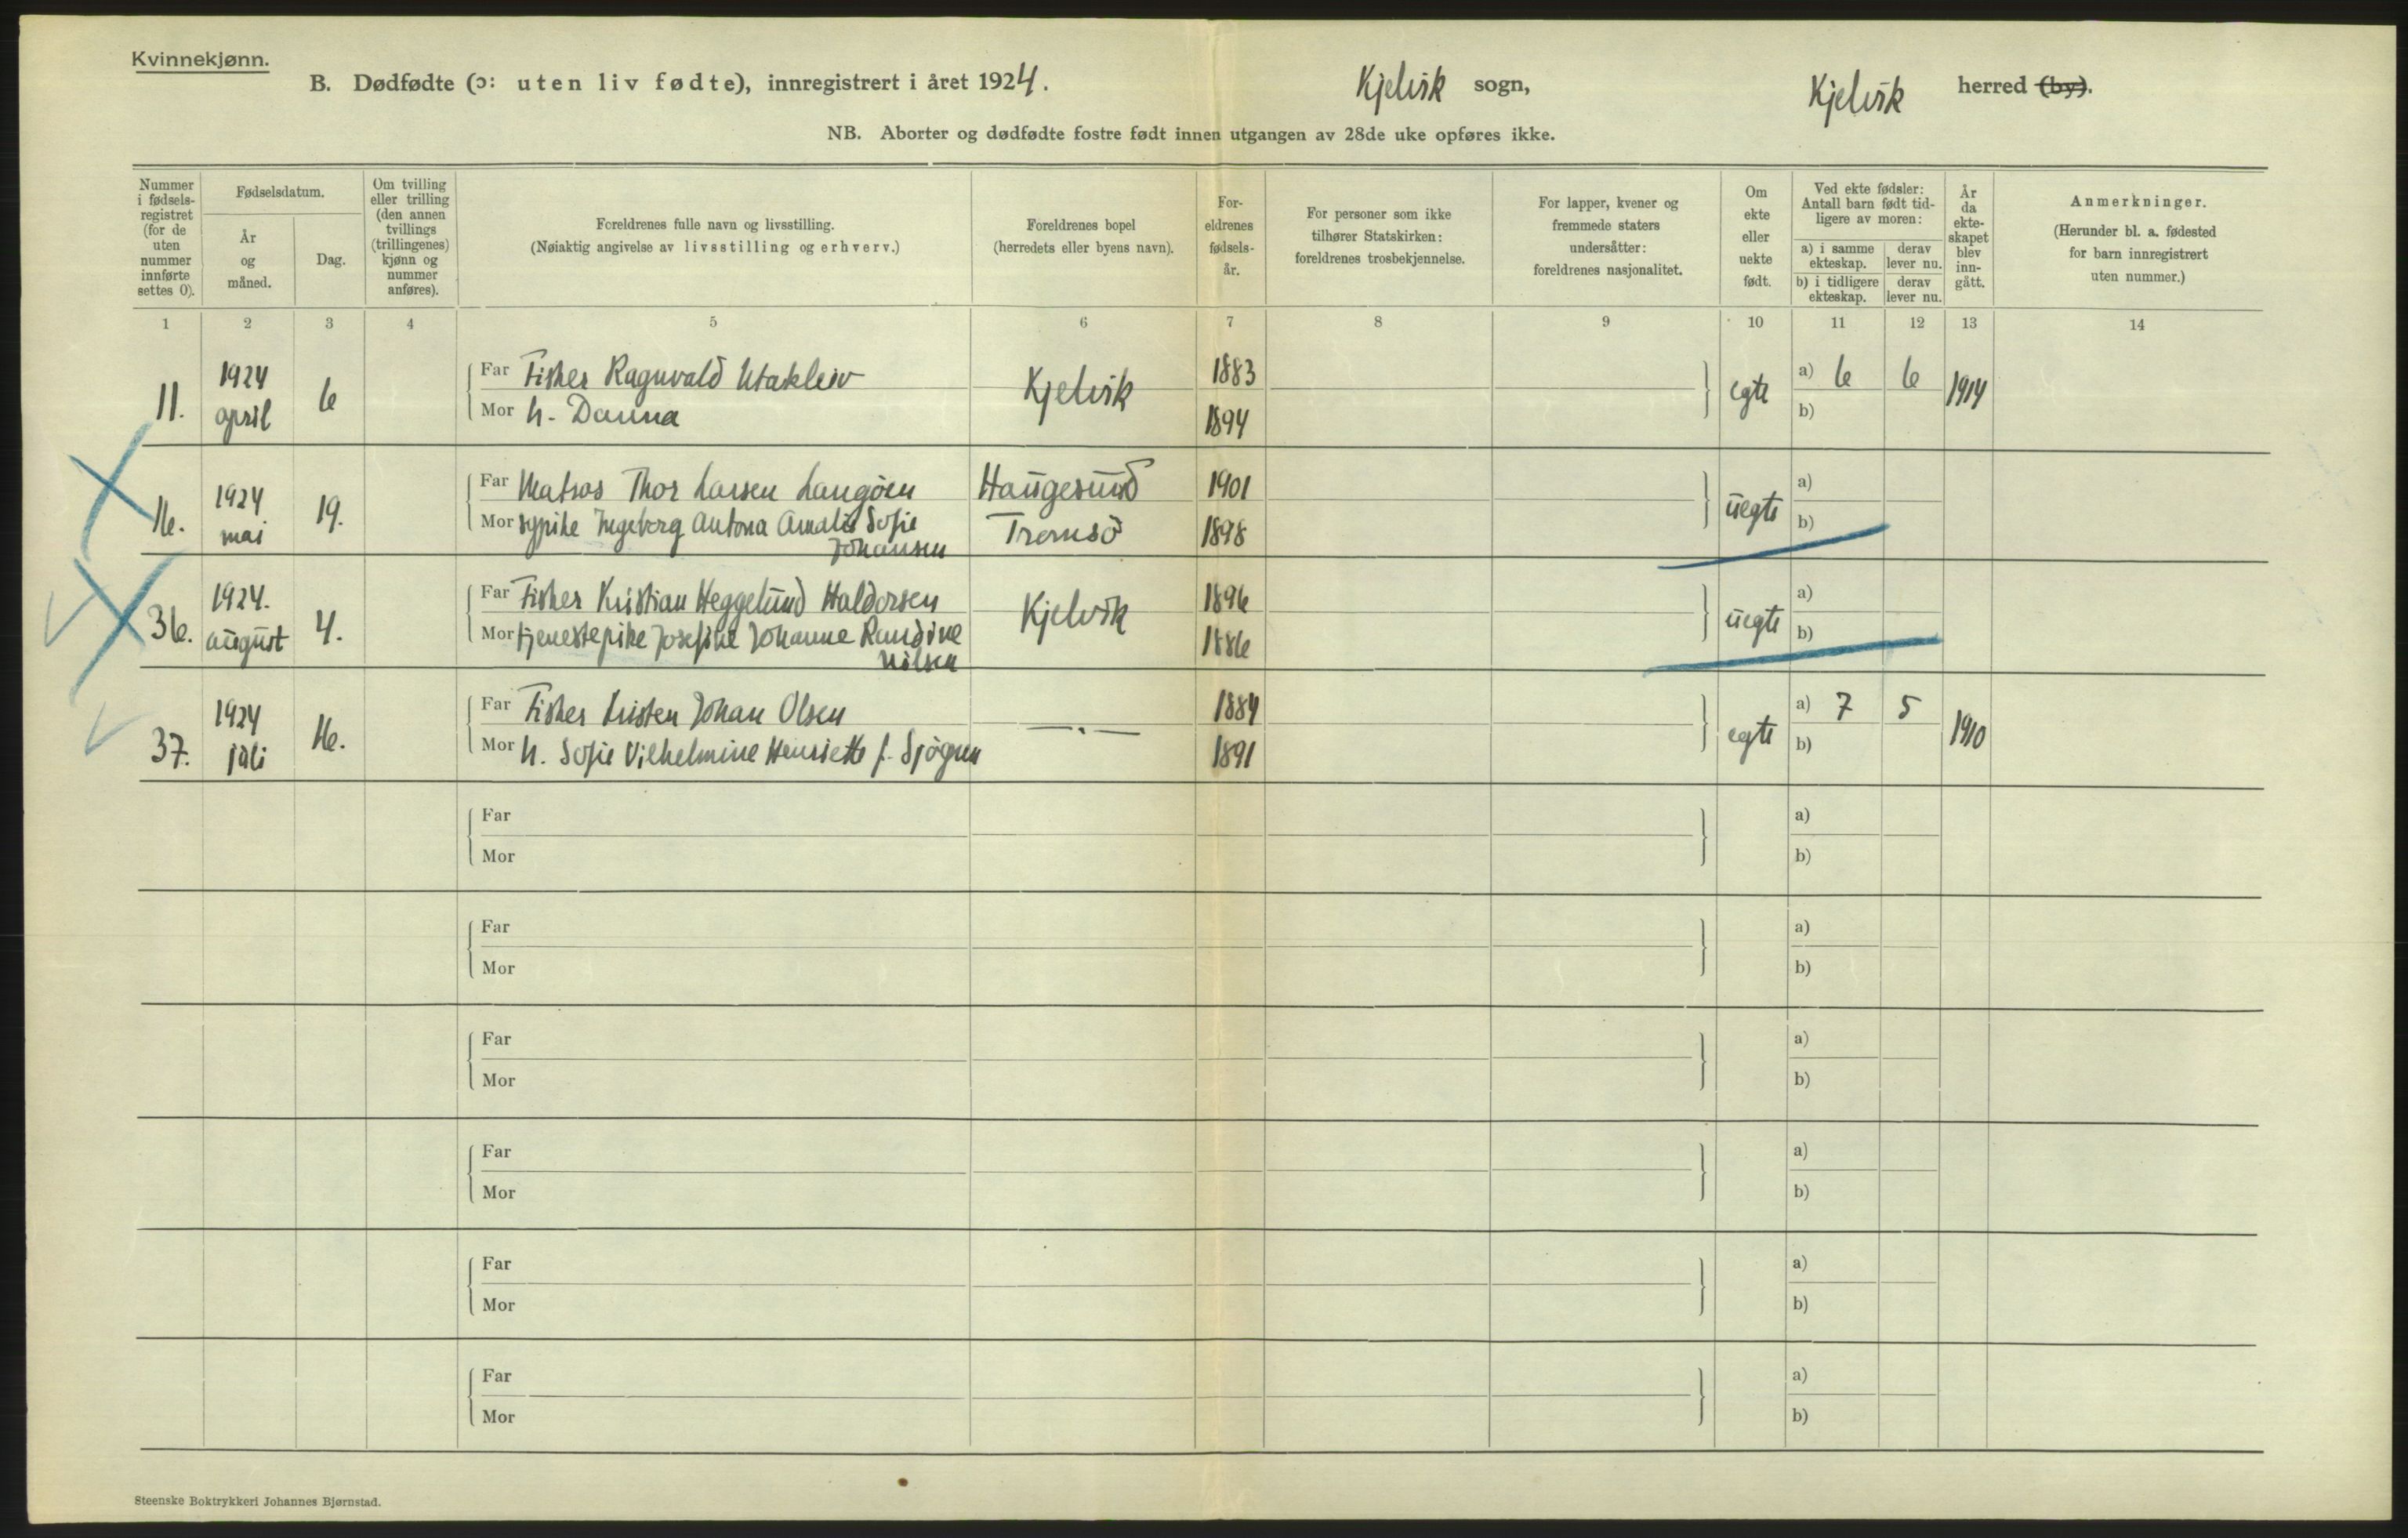 Kvinnekjønn.
B. Dødfødte (ɔ: uten liv fødte), innregistrert i året 1924. Kjelvik sogn, Kjelvik herred (by).
NB. Aborter og dødfødte fostre født innen utgangen av 28de uke opføres ikke.
Nummer i fødsels- registret (for de uten nummer innførte settes 0).
Fødselsdatum.
År og måned.
Dag.
Om tvilling eller trilling (den annen tvillings (trillingenes) kjønn og nummer anføres).
Foreldrenes fulle navn og livsstilling.
(Nøiaktig angivelse av livsstilling og erhverv.)
Foreldrenes bopel
(herredets eller byens navn).
For- eldrenes fødsels- år.
For personer som ikke tilhører Statskirken: foreldrenes trosbekjennelse.
For lapper, kvener og fremmede staters undersåtter: foreldrenes nasjonalitet.
Om ekte eller uekte født.
Ved ekte fødsler: Antall barn født tid- ligere av moren:
a) i samme ekteskap.
derav lever nu.
b) i tidligere ekteskap.
derav lever nu.
År da ekte- skapet blev inn- gått.
Anmerkninger.
(Herunder bl. a. fødested for barn innregistrert uten nummer.)
1 2 3 4 5 6 7 8 9 10 11 12 13 14
11. 1924 april 6 Far Fisker Ragnvald Utakleiv Kjelvik 1883 egte a) 6 6 1914
Mor h. Danna 1894 b)
16. 1924 mai 19. Far Matros Thor Larsen Langøen Haugesund 1901 uegte a)
Mor sypike Ingeborg Antona Amalie Sofie Tromsø 1898 b)
Johansen
36. 1924. august 4. Far Fisker Kristian Heggelund Haldorsen Kjelvik 1896 uegte a)
Mor tjenestepike Josefine Johanne Randine 1886 b)
Nilsen
37. 1924 juli 16. Far Fisker Kristen Johan Olsen —.— 1884 egte a) 7 5 1910
Mor h. Sofie Vilhelmine Henriette f. Sjøgren 1891 b)
Far a)
Mor b)
Far a)
Mor b)
Far a)
Mor b)
Far a)
Mor b)
Far a)
Mor b)
Far a)
Mor b)
Steenske Boktrykkeri Johannes Bjørnstad.